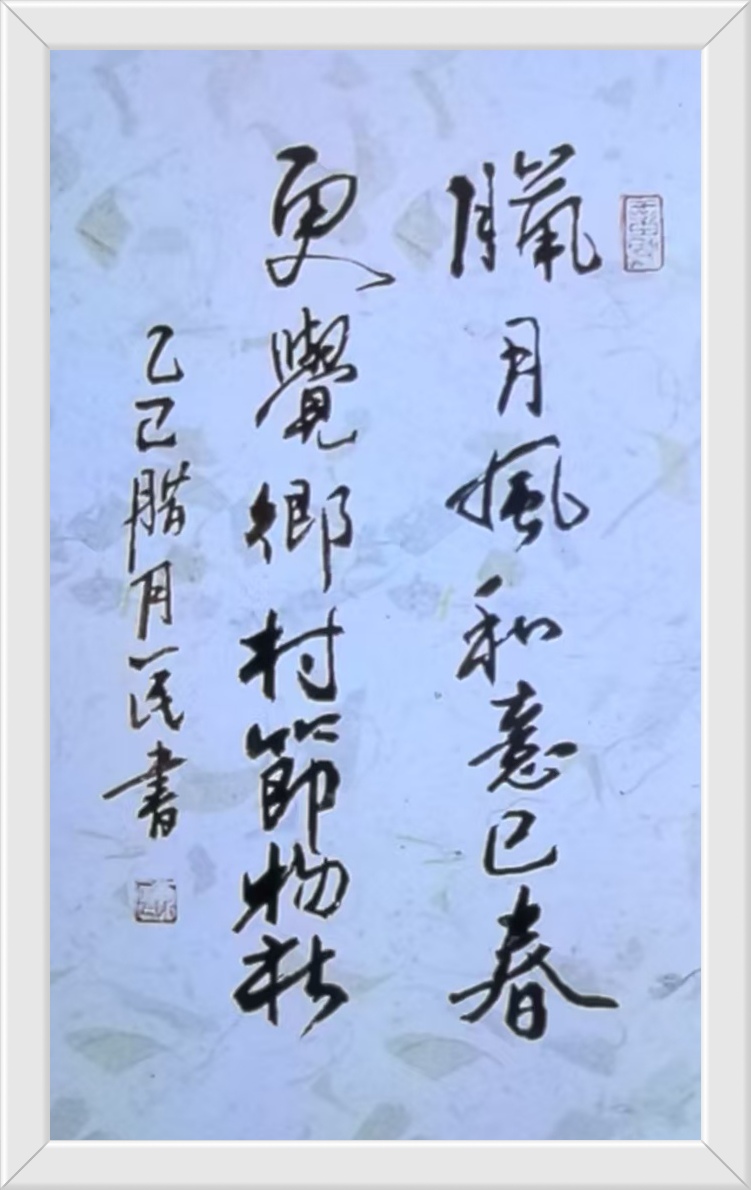 臘月風和意已春
更覺鄉村節物新
乙巳腊月一民書